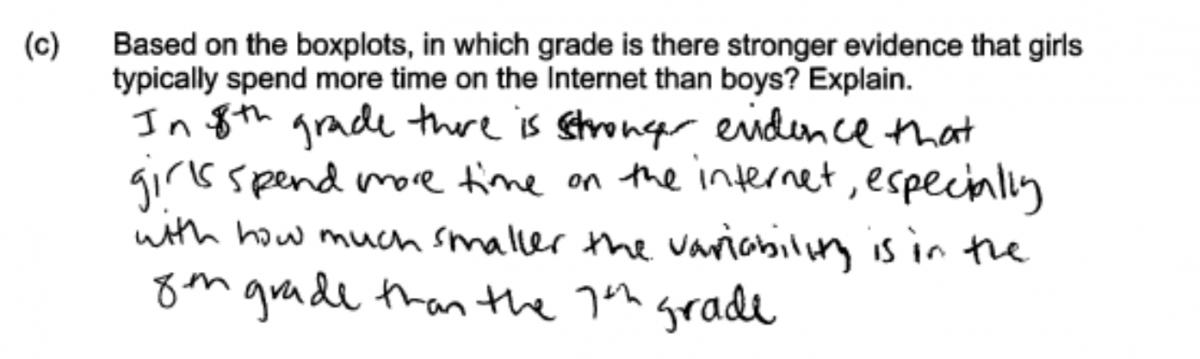 (c) Based on the boxplots, in which grade is there stronger evidence that girls
typically spend more time on the Internet than boys? Explain.
In 8th grade there is stronger evidence that
girls spend more time on the internet, especially
with how much smaller the variability is in the
8th grade than the 7th grade